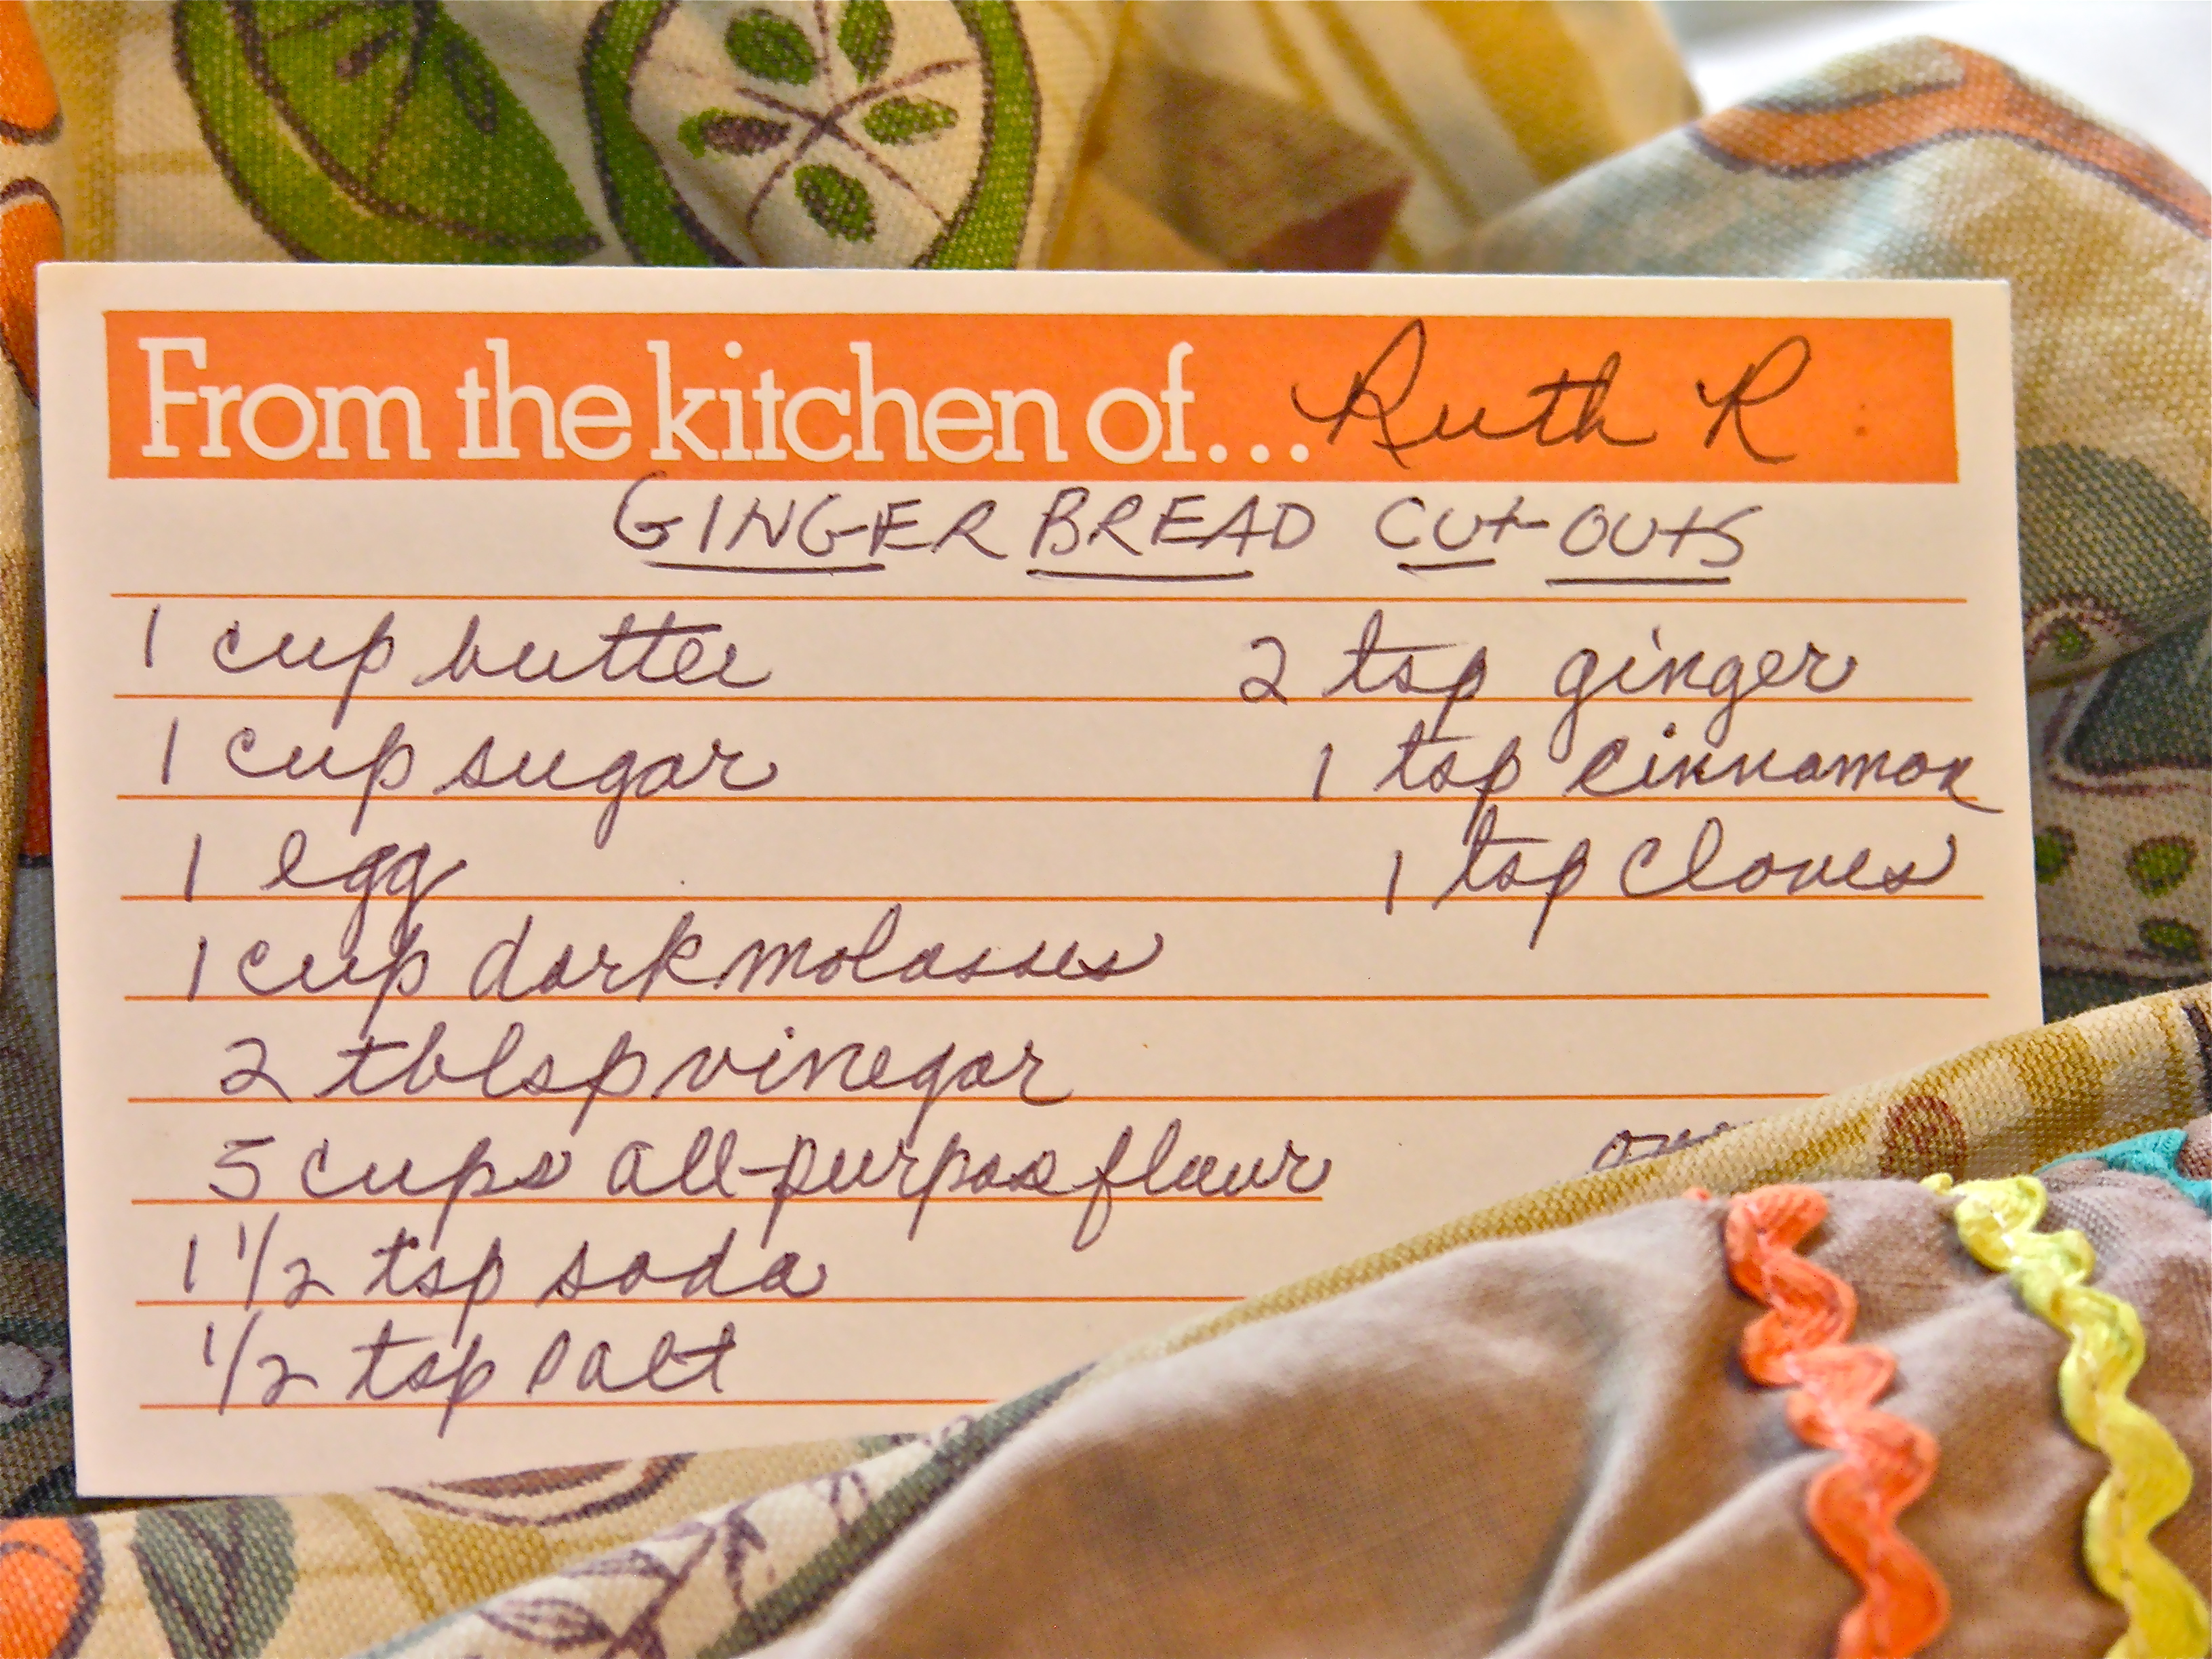 From the kitchen of... Ruth R
GINGER BREAD CUT-OUTS
1 cup butter
1 cup sugar
1 egg
1 cup dark molasses
2 tblsp vinegar
5 cups all-purpose flour
1 1/2 tsp soda
1/2 tsp salt
2 tsp ginger
1 tsp cinnamon
1 tsp cloves